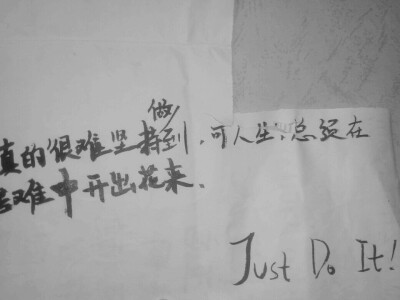 真的很难坚持做到,可人生,总须在
苦难中开出花来、
Just Do It!